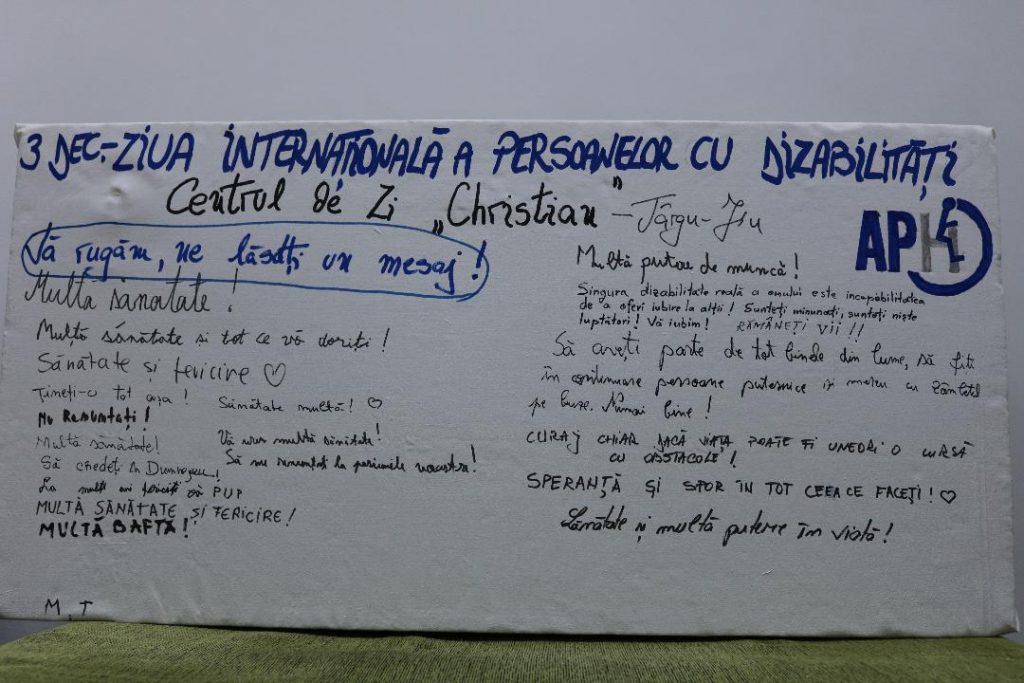 3 DEC.-ZIUA INTERNAȚIONALĂ A PERSOANELOR CU DIZABILITĂȚI
Centrul de Zi „Christian” - Târgu-Jiu
APH
Vă rugăm, ne lăsați un mesaj!
Multă sănătate!
Multă sănătate și tot ce vă doriți!
Sănătate și fericire ♡
Țineți-o tot așa!
Nu Renunțați!
Multă sănătate!
Să credeți în Dumnezeu!
La mulți ani fericiți vă PUP
MULTĂ SĂNĂTATE ȘI FERICIRE!
MULTĂ BAFTĂ!
Sănătate multă! ♡
Vă urez multă sănătate!
Să nu renunțați la voastre!
M.T
Multă putere de muncă!
Singura dizabilitate reală a omului este incapabilitatea
de a oferi iubire la alții! Sunteți minunați, sunteți niște
luptători! Vă iubim! RĂMÂNEȚI VII!!
Să aveți parte de tot binele din lume, să fiți
în continuare persoane puternice și mereu cu zâmbetul
pe buze. Numai bine!
CURAJ CHIAR DACĂ VIAȚA POATE FI UNEORI O CURSĂ
CU OBSTACOLE!
SPERANȚĂ ȘI SPOR ÎN TOT CEEA CE FACEȚI! ♡
Sănătate și multă putere în viață!